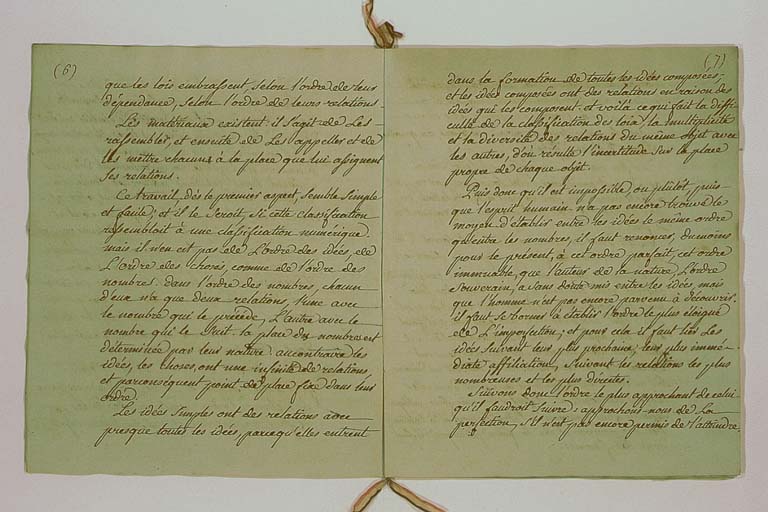 (6)
que les lois embrassent, selon l'ordre de leur
dépendance, selon l'ordre de leurs relations.
Les matériaux existent. il s'agit de Les
rassembler, et ensuite de Les appeller et de
les mettre chacuns à la place que lui assignent
ses relations.
Ce travail, dès le premier aspect, semble simple
et facile, et il le seroit, si cette classification
ressembloit à une classification numérique.
mais il n'en est pas de L'ordre des idées, de
L'ordre des choses, comme de l'ordre des
nombres. dans l'ordre des nombres, chacun
d'eux n'a que deux relations, l'une avec
le nombre qui le précède, L'autre avec le
nombre qui le suit. la place des nombres est
déterminée par leur nature. au contraire les
idées, les choses, ont une infinité de relations,
et par conséquent point de place fixe dans leur
ordre.
Les idées simples ont des relations avec
presque toutes les idées, parcequ'elles entrent
(7)
dans la formation de toutes les idées composées;
et les idées composées ont des relations en raison des
idées qui les composent. et voilà ce qui fait la diffi-
culté de la classification des loix. la multiplicité
et la diversité des relations du même objet avec
les autres, d'où résulte l'incertitude sur la place
propre de chaque objet.
Puis donc qu'il est impossible ou plutôt, puis-
que l'esprit humain n'a pas encore trouvé le
moyen d'établir entre les idées le même ordre
qu'entre les nombres, il faut renoncer, du moins
pour le présent, à cet ordre parfait, cet ordre
immuable, que l'auteur de la nature, L'ordre
souverain, a sans doute mis entre les idées, mais
que l'homme n'est pas encore parvenu à découvrir.
il faut se borner à établir l'ordre le plus éloigné
de L'imperfection; et pour cela il faut lier Les
idées suivant leur plus prochaine, leur plus immé-
diate affiliation, suivant les relations les plus
nombreuses et les plus directes.
Suivons donc l'ordre le plus approchant de celui
qu'il faudroit suivre: approchons-nous de La
perfection, s'il n'est pas encore permis de l'atteindre.